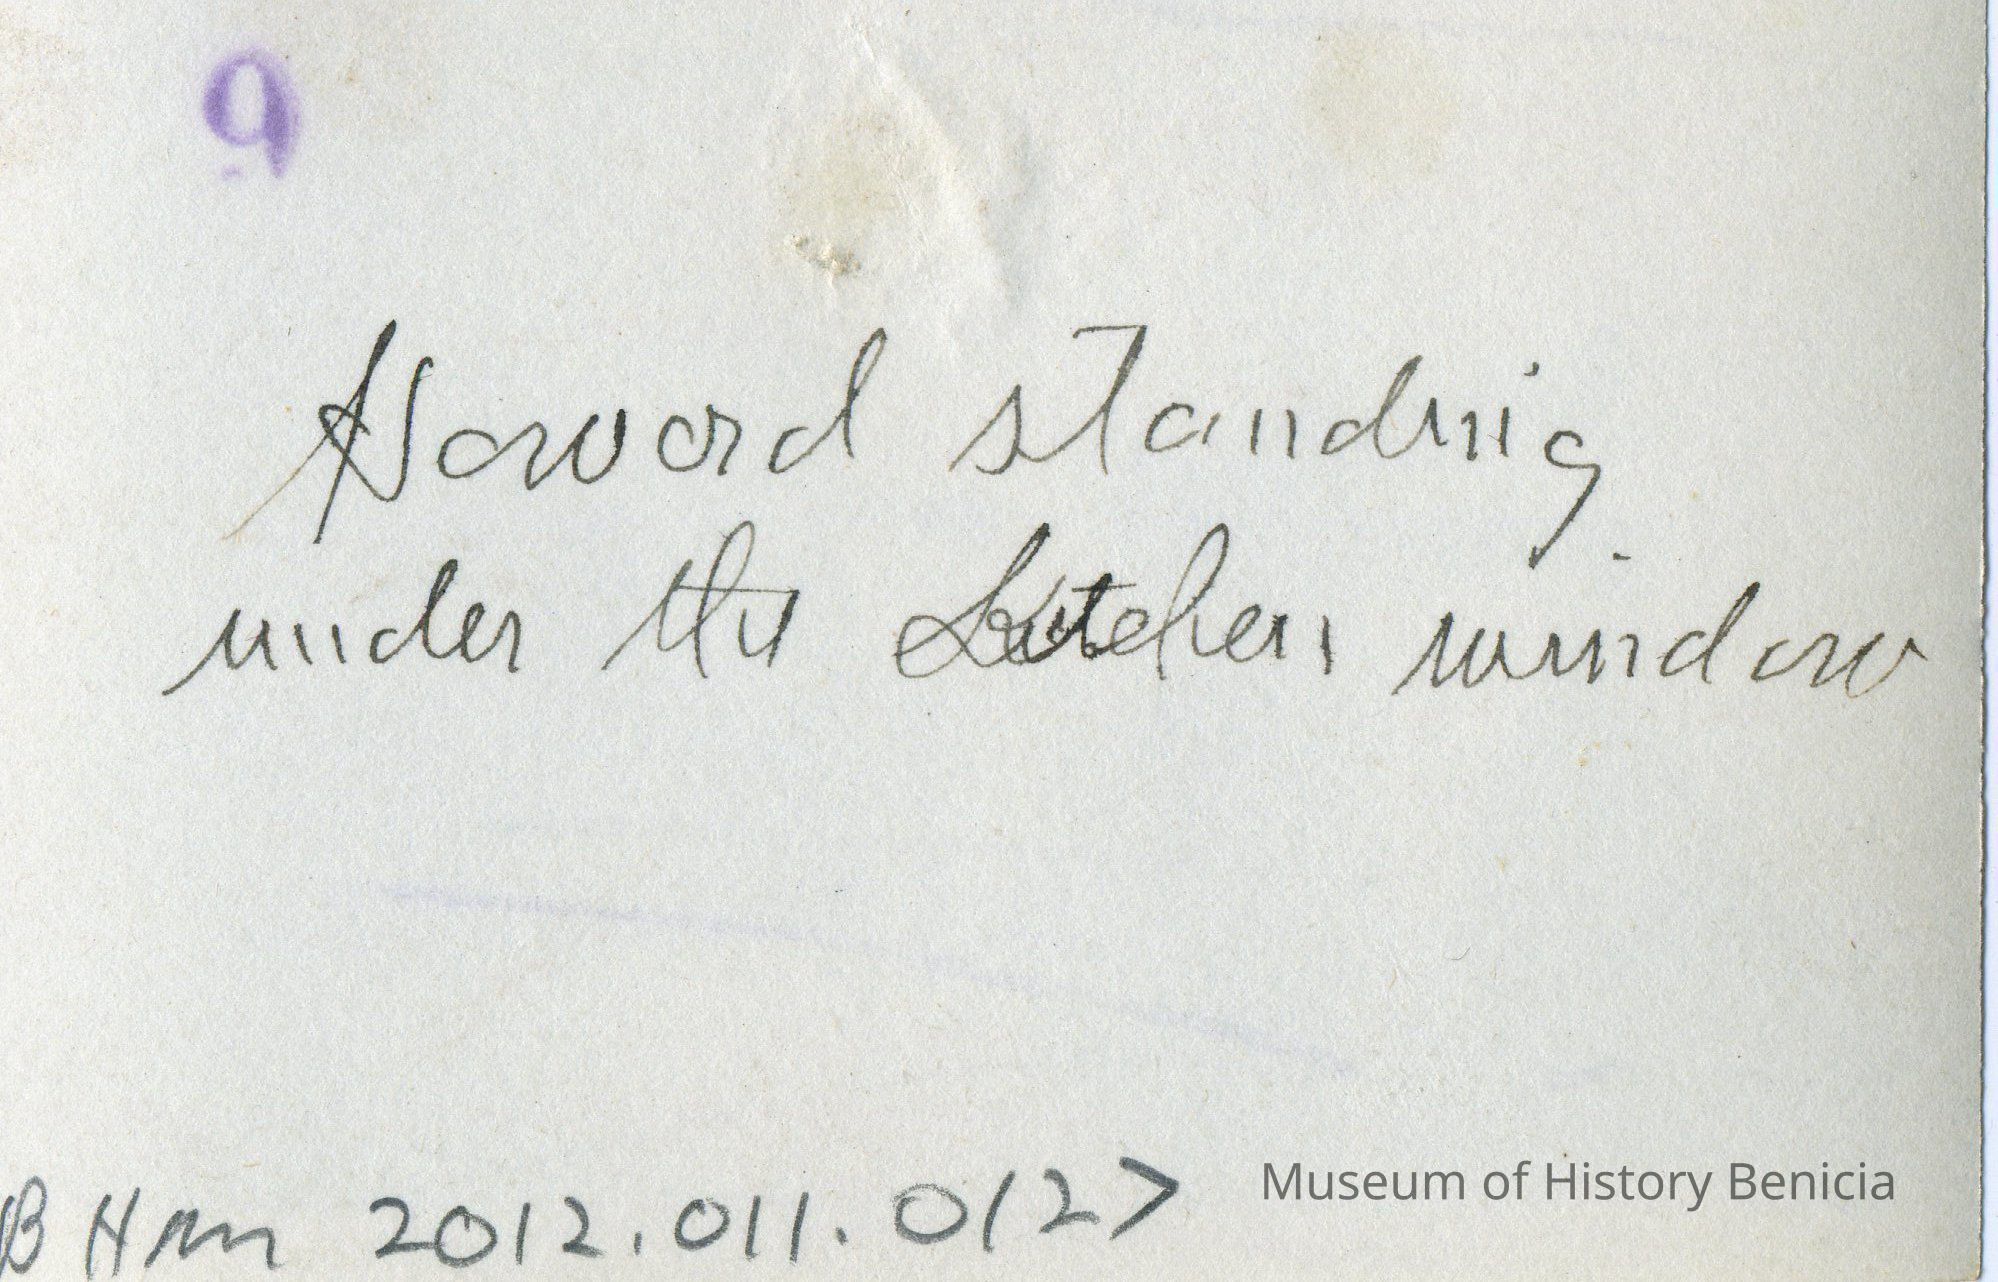 9
Howard standing
under the kitchen window
BHM 2012.011.0127
Museum of History Benicia